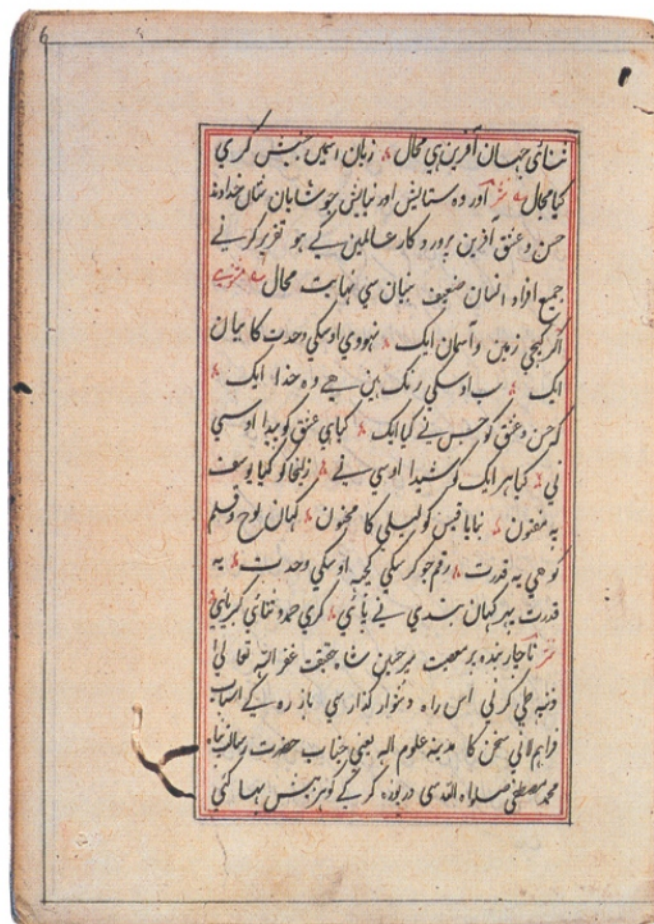 6
ثنائی جہان آفرین ہی محال ؞ زبان اسمین جنبش کری
کیا مجال ؞ نثر اور وہ ستایش اور نیایش جو شایان شان خداوند
حسن و عشق آفرین پروردکار عالمین کے ہو تقریر کرنے
جمیع افراد انسان ضعیف بنیان سی نہایت محال
اکر کیجی زمین و آسمان ایک ؞ نہووی اوسکی وحدت کا بیان
ایک ؞ سب اوسکی رنک ہین ہے وہ خدا ایک ؞
کہ حسن و عشق کو جس نے کیا ایک ؞ کیا ہی عشق کو پیدا اوسی
نی ؞ کیا ہر ایک کو شیدا اوسی نے ؞ زلیخا کو کیا یوسف
پہ مفتون ؞ بنایا قیس کو لیلی کا مجنون ؞ کہان لوح و قلم
کو ھی یہ قدرت ؞ رقم جو کر سکی کچھ اوسکی وحدت ؞ یہ
قدرت پہر کہان بندی نے پائی ؞ کری حمد و ثنائی کبریائی
نثر ناچار بندہ پر معصیت میر حسین شاہ حقیقت غفر اللہ تعالی
ذنبہ طی کرنی اس راہ دشوار کذار سی باز رہ کے اسباب
فراہم لانی سخن کا مدینہ علوم الہ یعنی جناب حضرت رسالت پناہ
محمد مصطفی صلواہ اللہ سی دریوزہ کر کے کوہر بیش بہا کئی